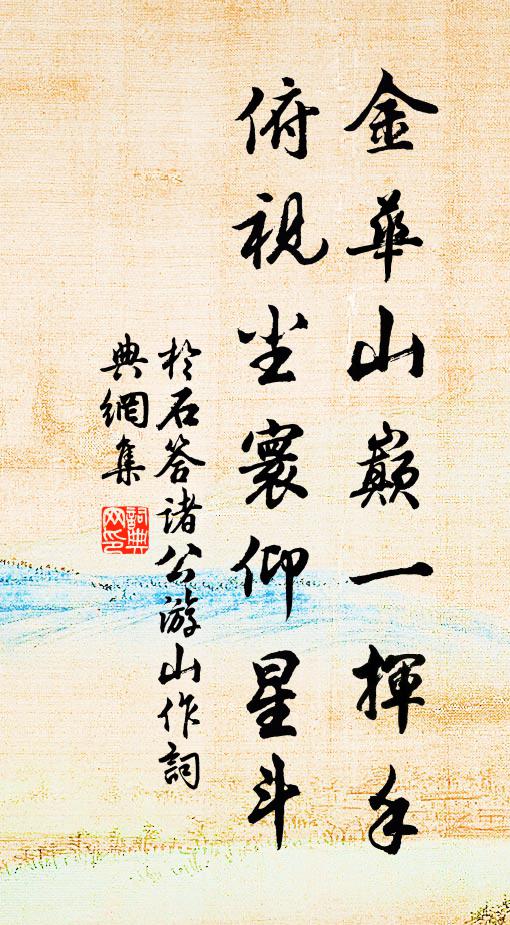 金華山巔一揮手
俯視尘寰仰星斗
於石答诸公游山作詞
典網集
詞典网印